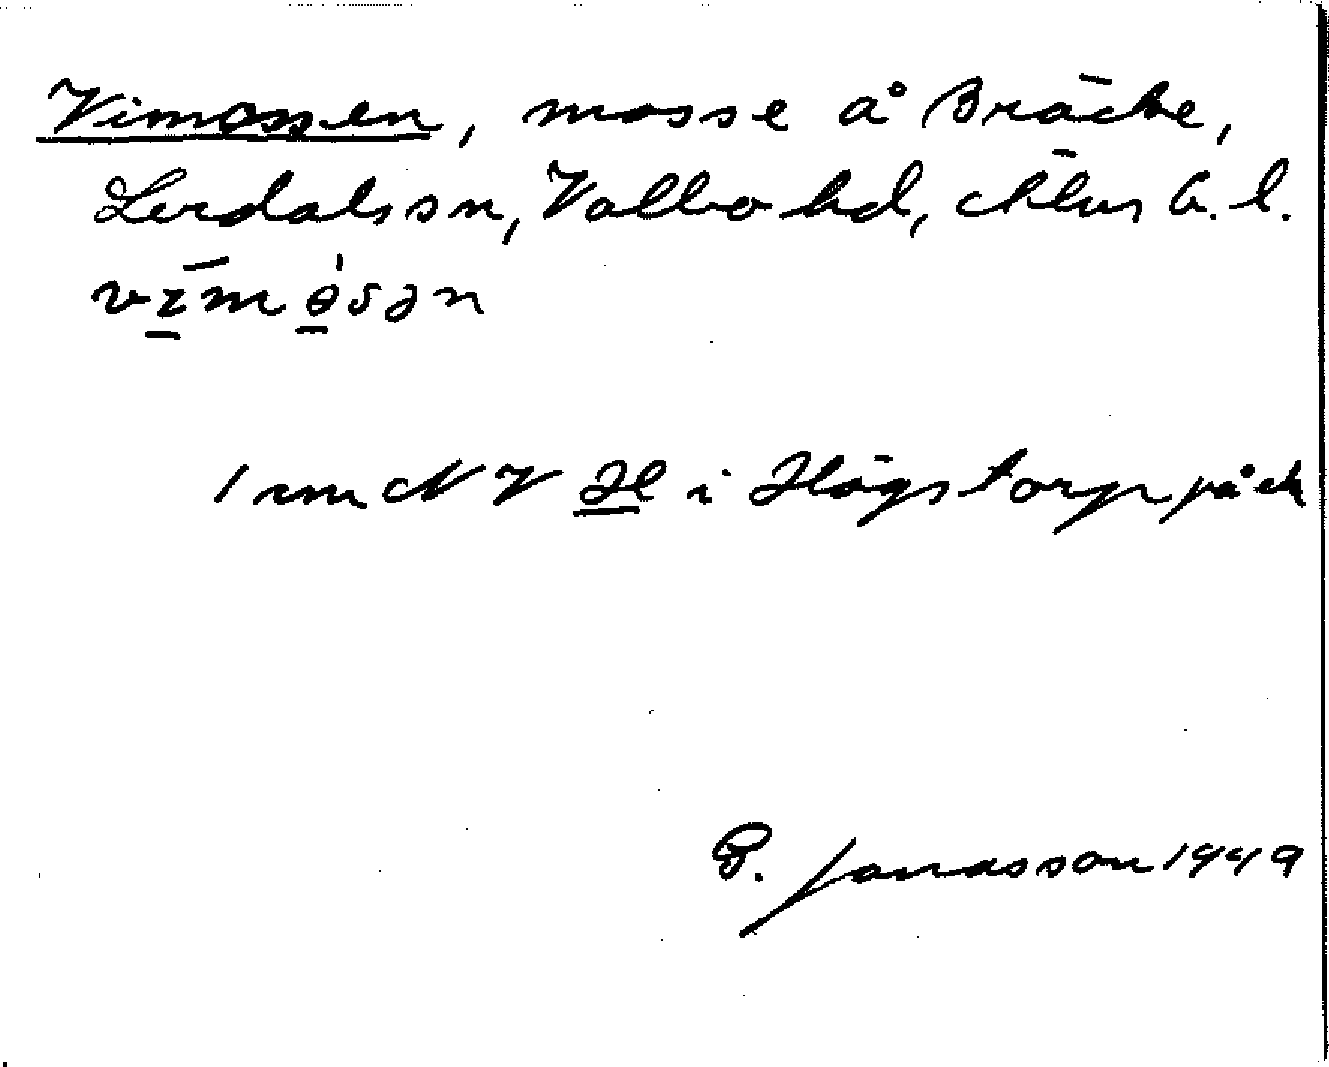 Vimossen, mosse å Bräcke,
Lerdals sn, Valbo hd, Älvsb. l.
vīmøsən
1 cm NV Hl i Högstorp påek
G. Jonasson 1949